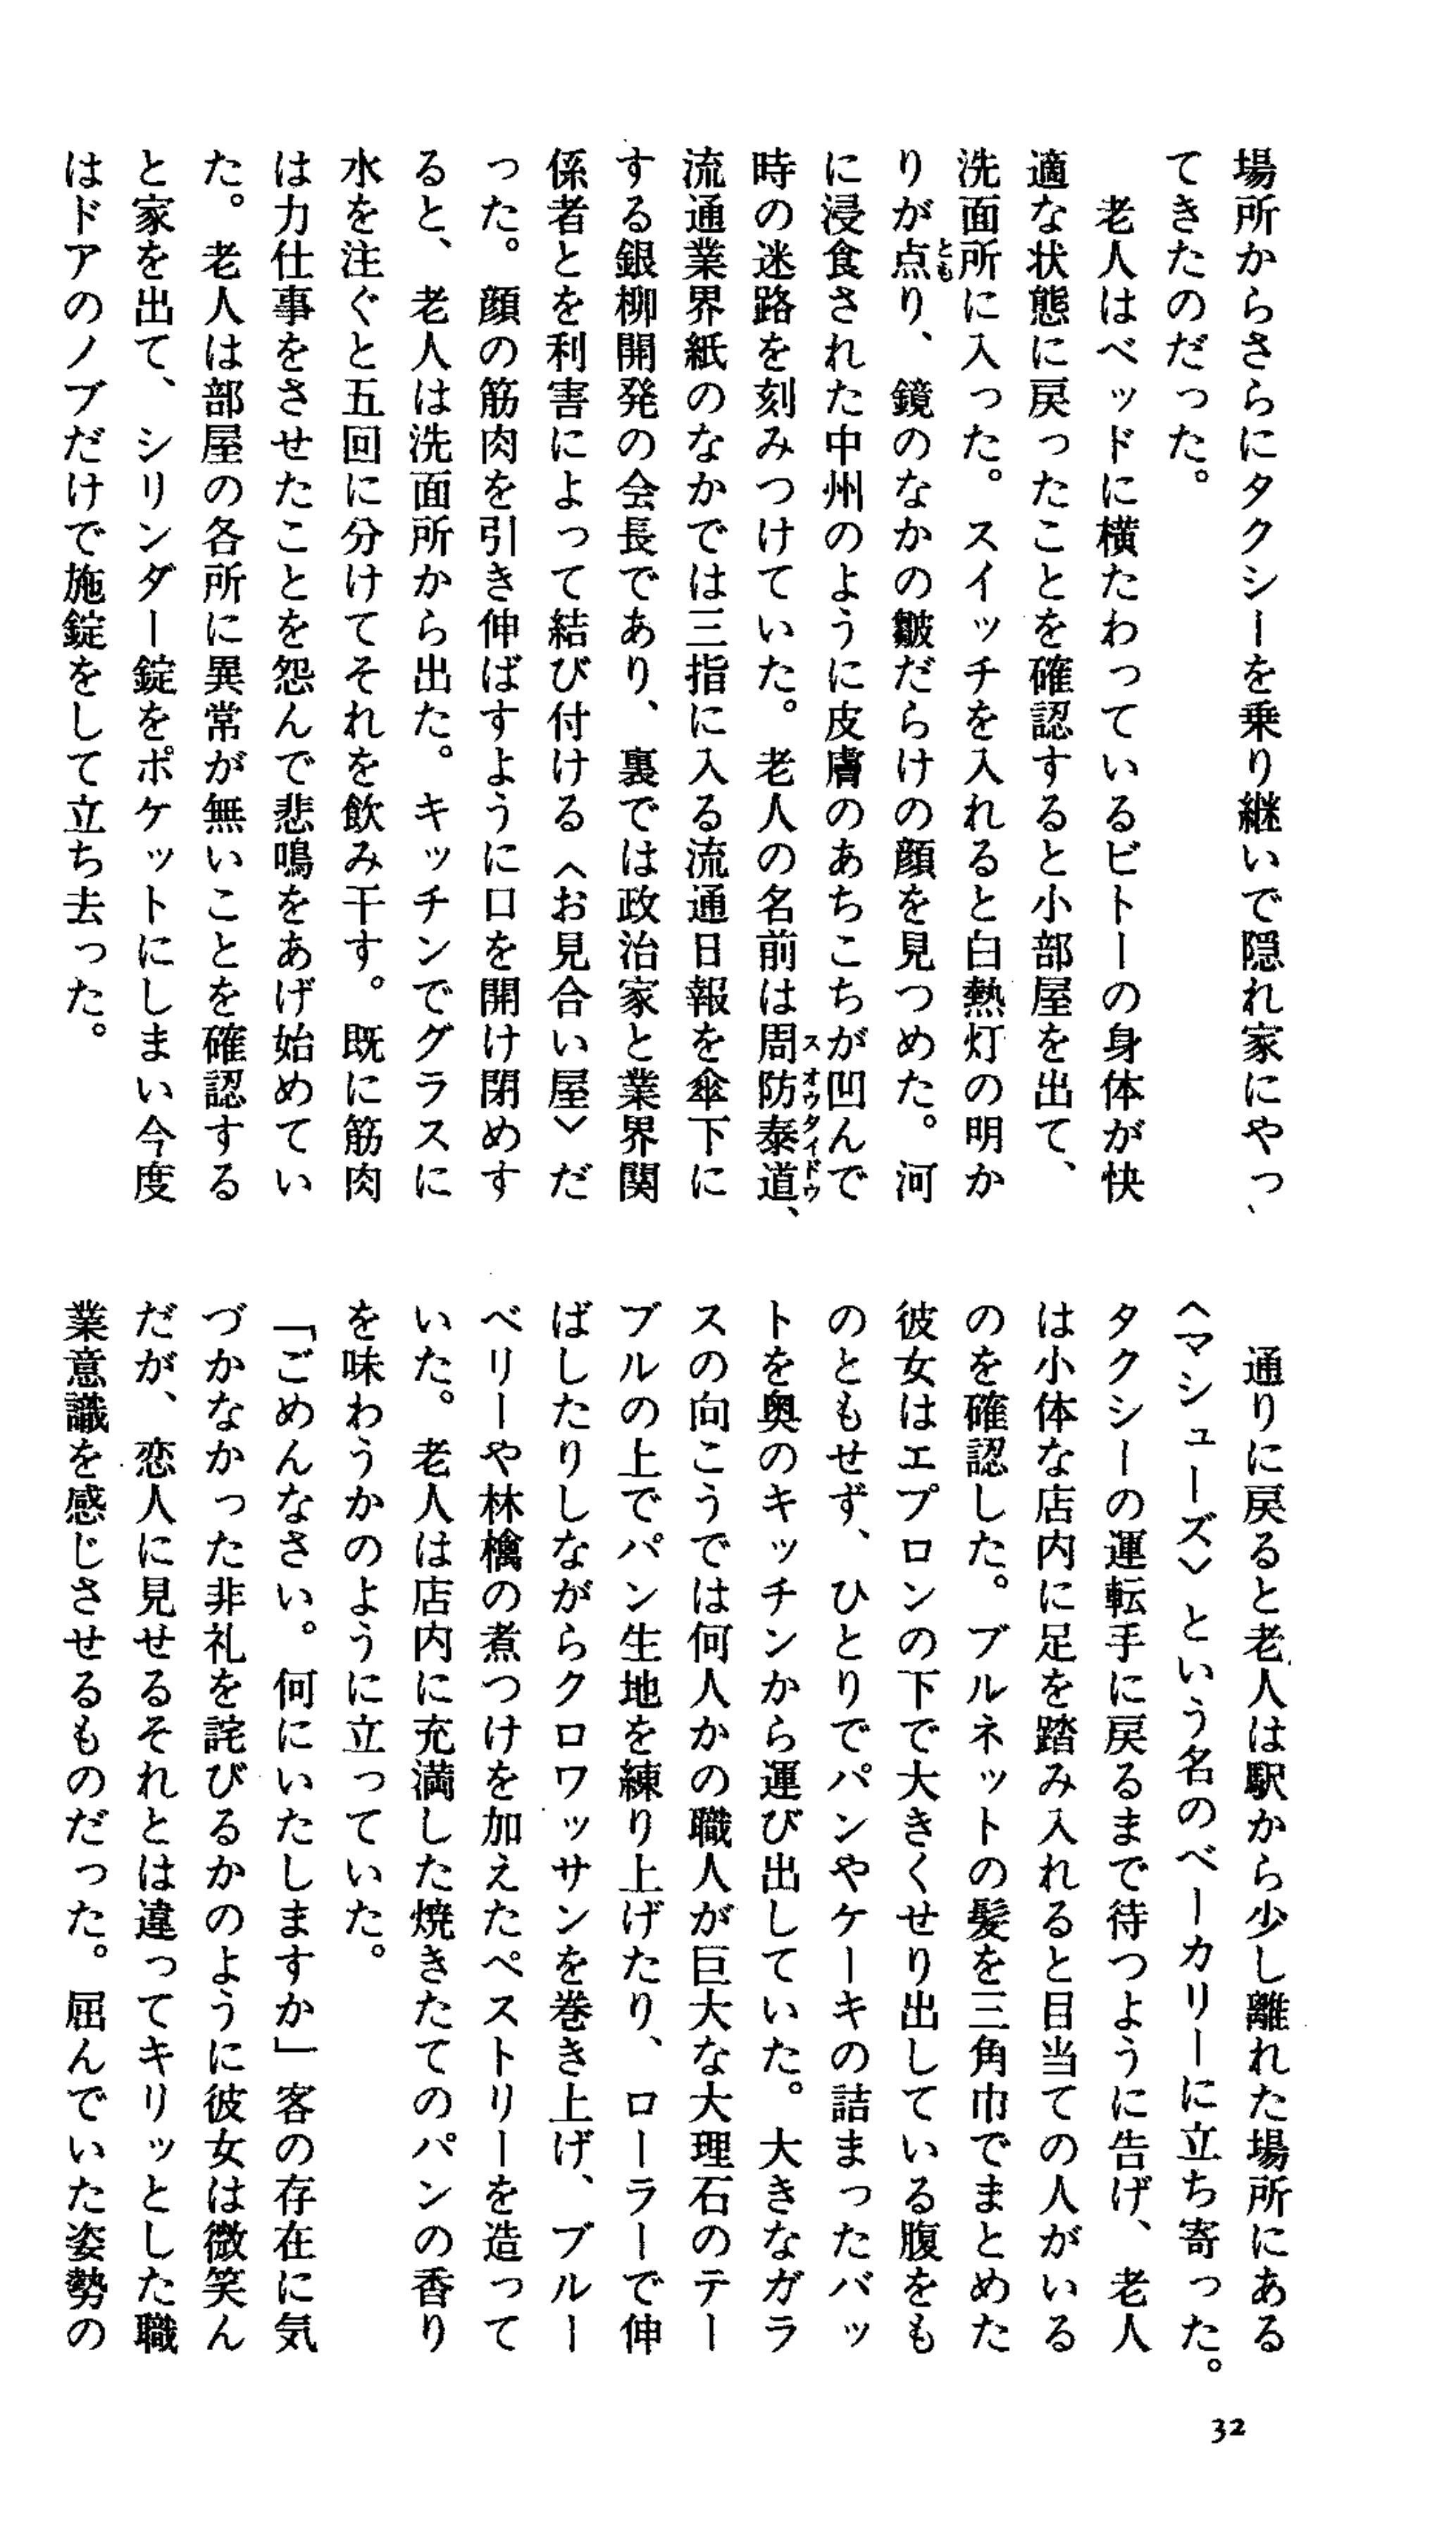 場所からさらにタクシーを乗り継いで隠れ家にやっ
てきたのだった。
　老人はベッドに横たわっているビトーの身体が快
適な状態に戻ったことを確認すると小部屋を出て、
洗面所に入った。スイッチを入れると白熱灯の明か
りが点り、鏡のなかの皺だらけの顔を見つめた。河
とも
に浸食された中州のように皮膚のあちこちが凹んで
時の迷路を刻みつけていた。老人の名前は周防泰道、
スオウタイドウ
流通業界紙のなかでは三指に入る流通日報を傘下に
する銀柳開発の会長であり、裏では政治家と業界関
係者とを利害によって結び付ける〈お見合い屋〉だ
った。顔の筋肉を引き伸ばすように口を開け閉めす
ると、老人は洗面所から出た。キッチンでグラスに
水を注ぐと五回に分けてそれを飲み干す。既に筋肉
は力仕事をさせたことを怨んで悲鳴をあげ始めてい
た。老人は部屋の各所に異常が無いことを確認する
と家を出て、シリンダー錠をポケットにしまい今度
はドアのノブだけで施錠をして立ち去った。
　通りに戻ると老人は駅から少し離れた場所にある
〈マシューズ〉という名のベーカリーに立ち寄った。
タクシーの運転手に戻るまで待つように告げ、老人
は小体な店内に足を踏み入れると目当ての人がいる
のを確認した。ブルネットの髪を三角巾でまとめた
彼女はエプロンの下で大きくせり出している腹をも
のともせず、ひとりでパンやケーキの詰まったバッ
トを奥のキッチンから運び出していた。大きなガラ
スの向こうでは何人かの職人が巨大な大理石のテー
ブルの上でパン生地を練り上げたり、ローラーで伸
ばしたりしながらクロワッサンを巻き上げ、ブルー
ベリーや林檎の煮つけを加えたペストリーを造って
いた。老人は店内に充満した焼きたてのパンの香り
を味わうかのように立っていた。
「ごめんなさい。何にいたしますか」客の存在に気
づかなかった非礼を詫びるかのように彼女は微笑ん
だが、恋人に見せるそれとは違ってキリッとした職
業意識を感じさせるものだった。屈んでいた姿勢の
32